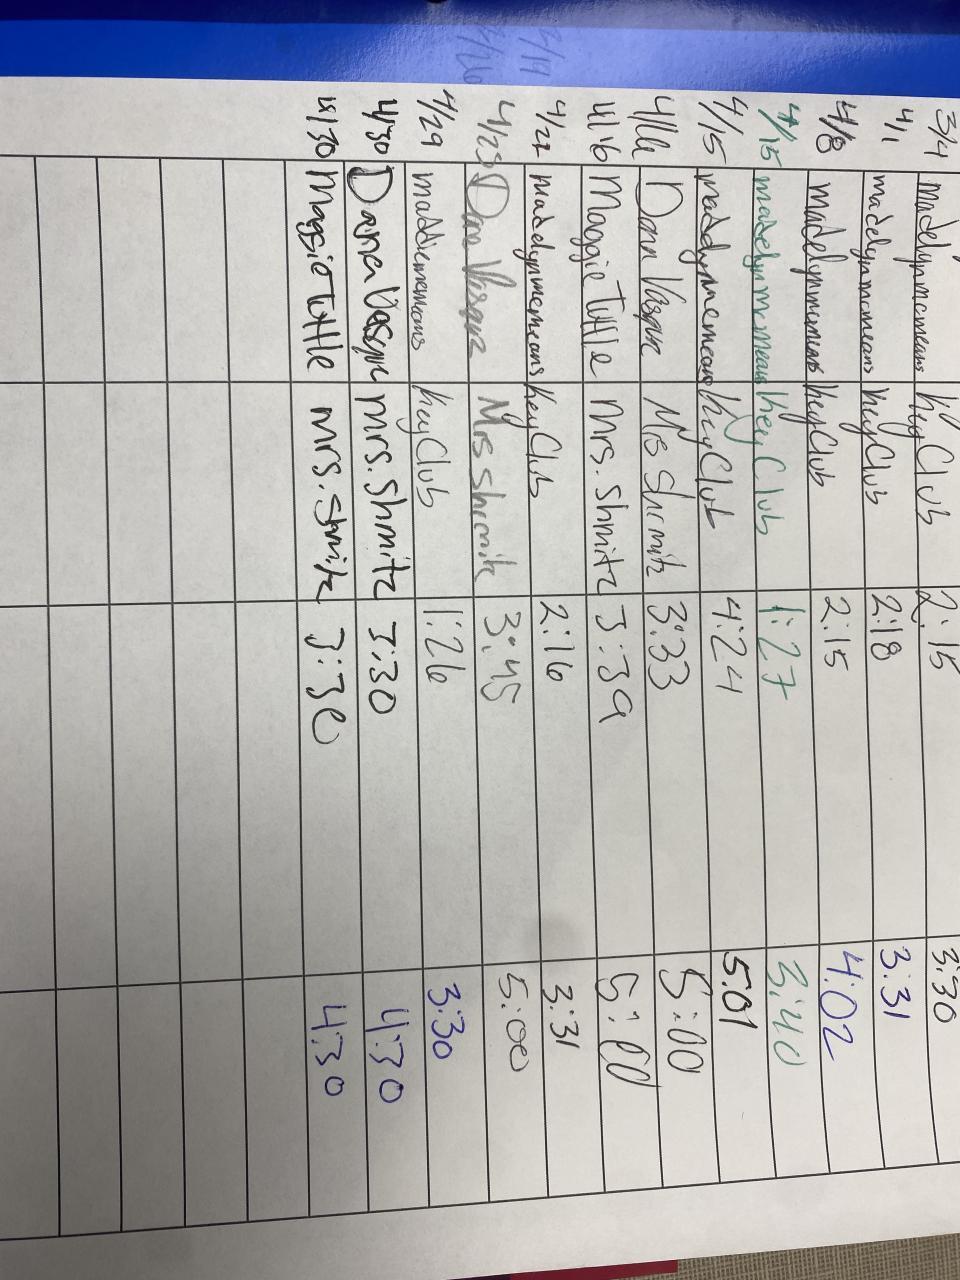 3/4 madelynmcmeans Key Club 2:15 3:30
4/1 madelynmcmeans Key Club 2:18 3:31
4/8 madelynmcmeans Key Club 2:15 4:02
4/15 madelyn mcmeans Key Club 1:27 3:40
4/15 madelynmcmeans Key Club 4:24 5:01
4/16 Dana Vasquez Mrs Shrmitz 3:33 5:00
4/16 Maggie Tuttle Mrs. Shmitz 3:39 5:00
4/22 madelynmcmeans Key Club 2:16 3:31
4/23 Dana Vasquez Mrs 3:45 5:00
4/29 maddiemcmeans Key Club 1:26 3:30
4/30 Dana Mrs. Shmitz 3:30 4:30
4/30 Maggie Tuttle Mrs. 3:30 4:30